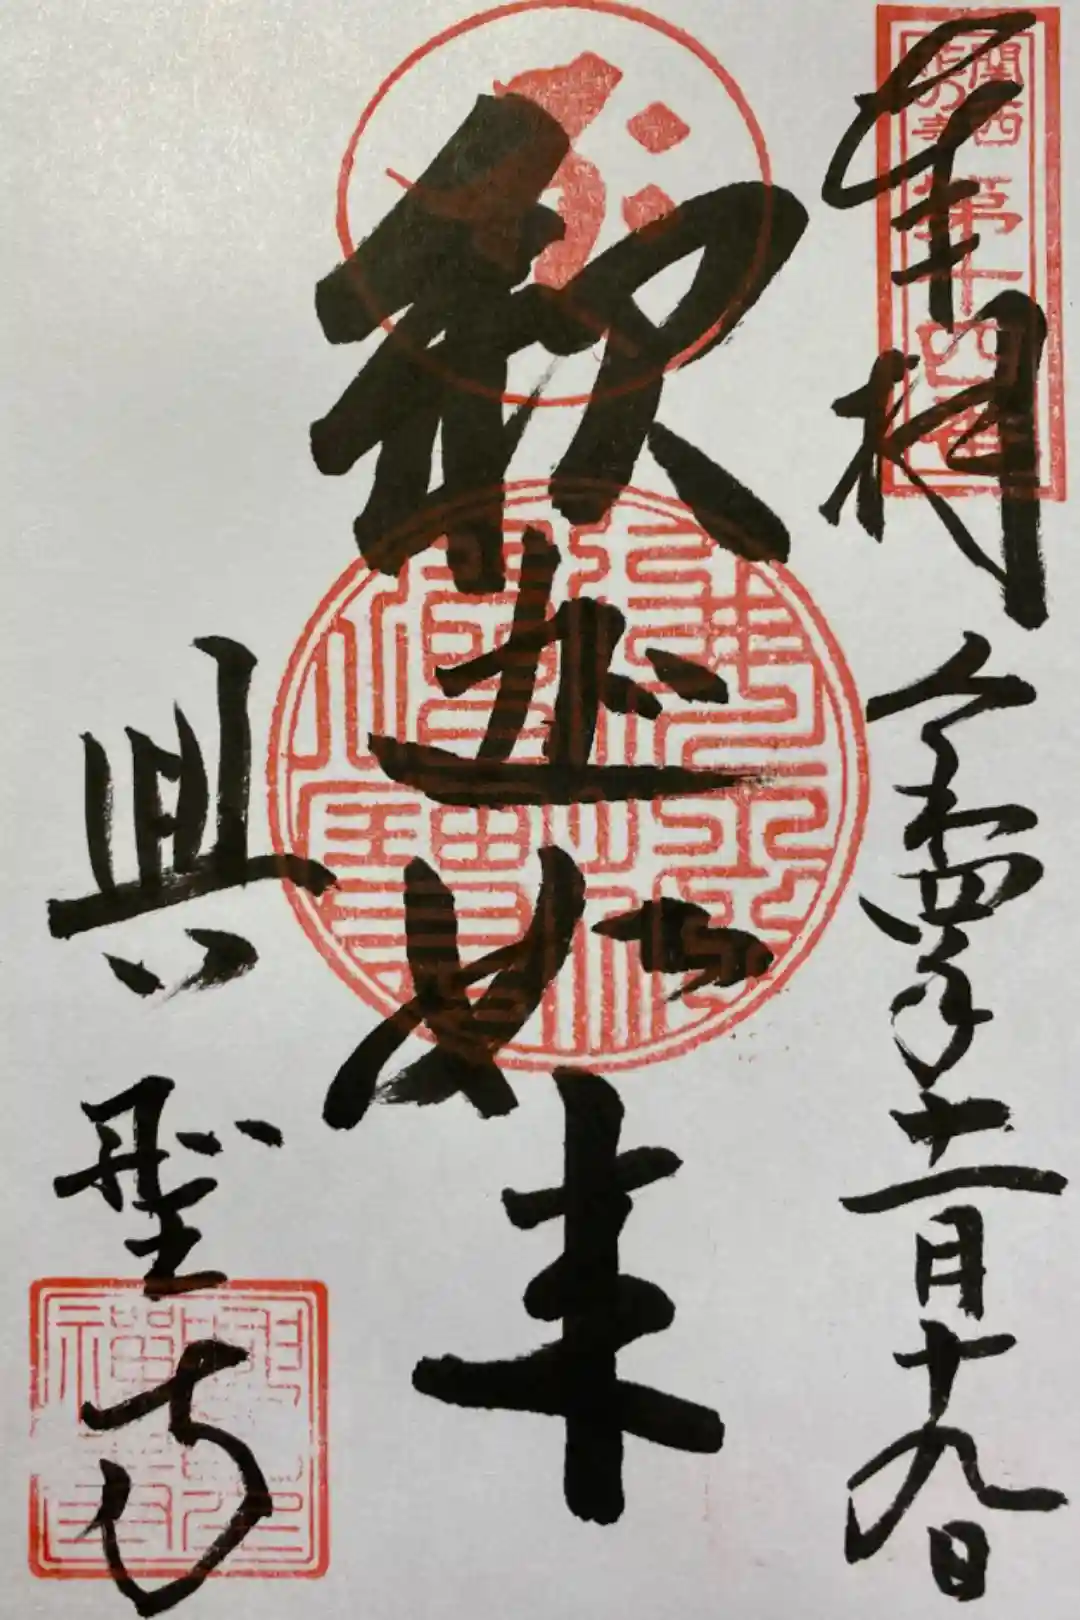 關西
花の寺
第十四番
奉拝 令和四年十一月十九日
釈迦如来
興聖寺
興聖
禪寺